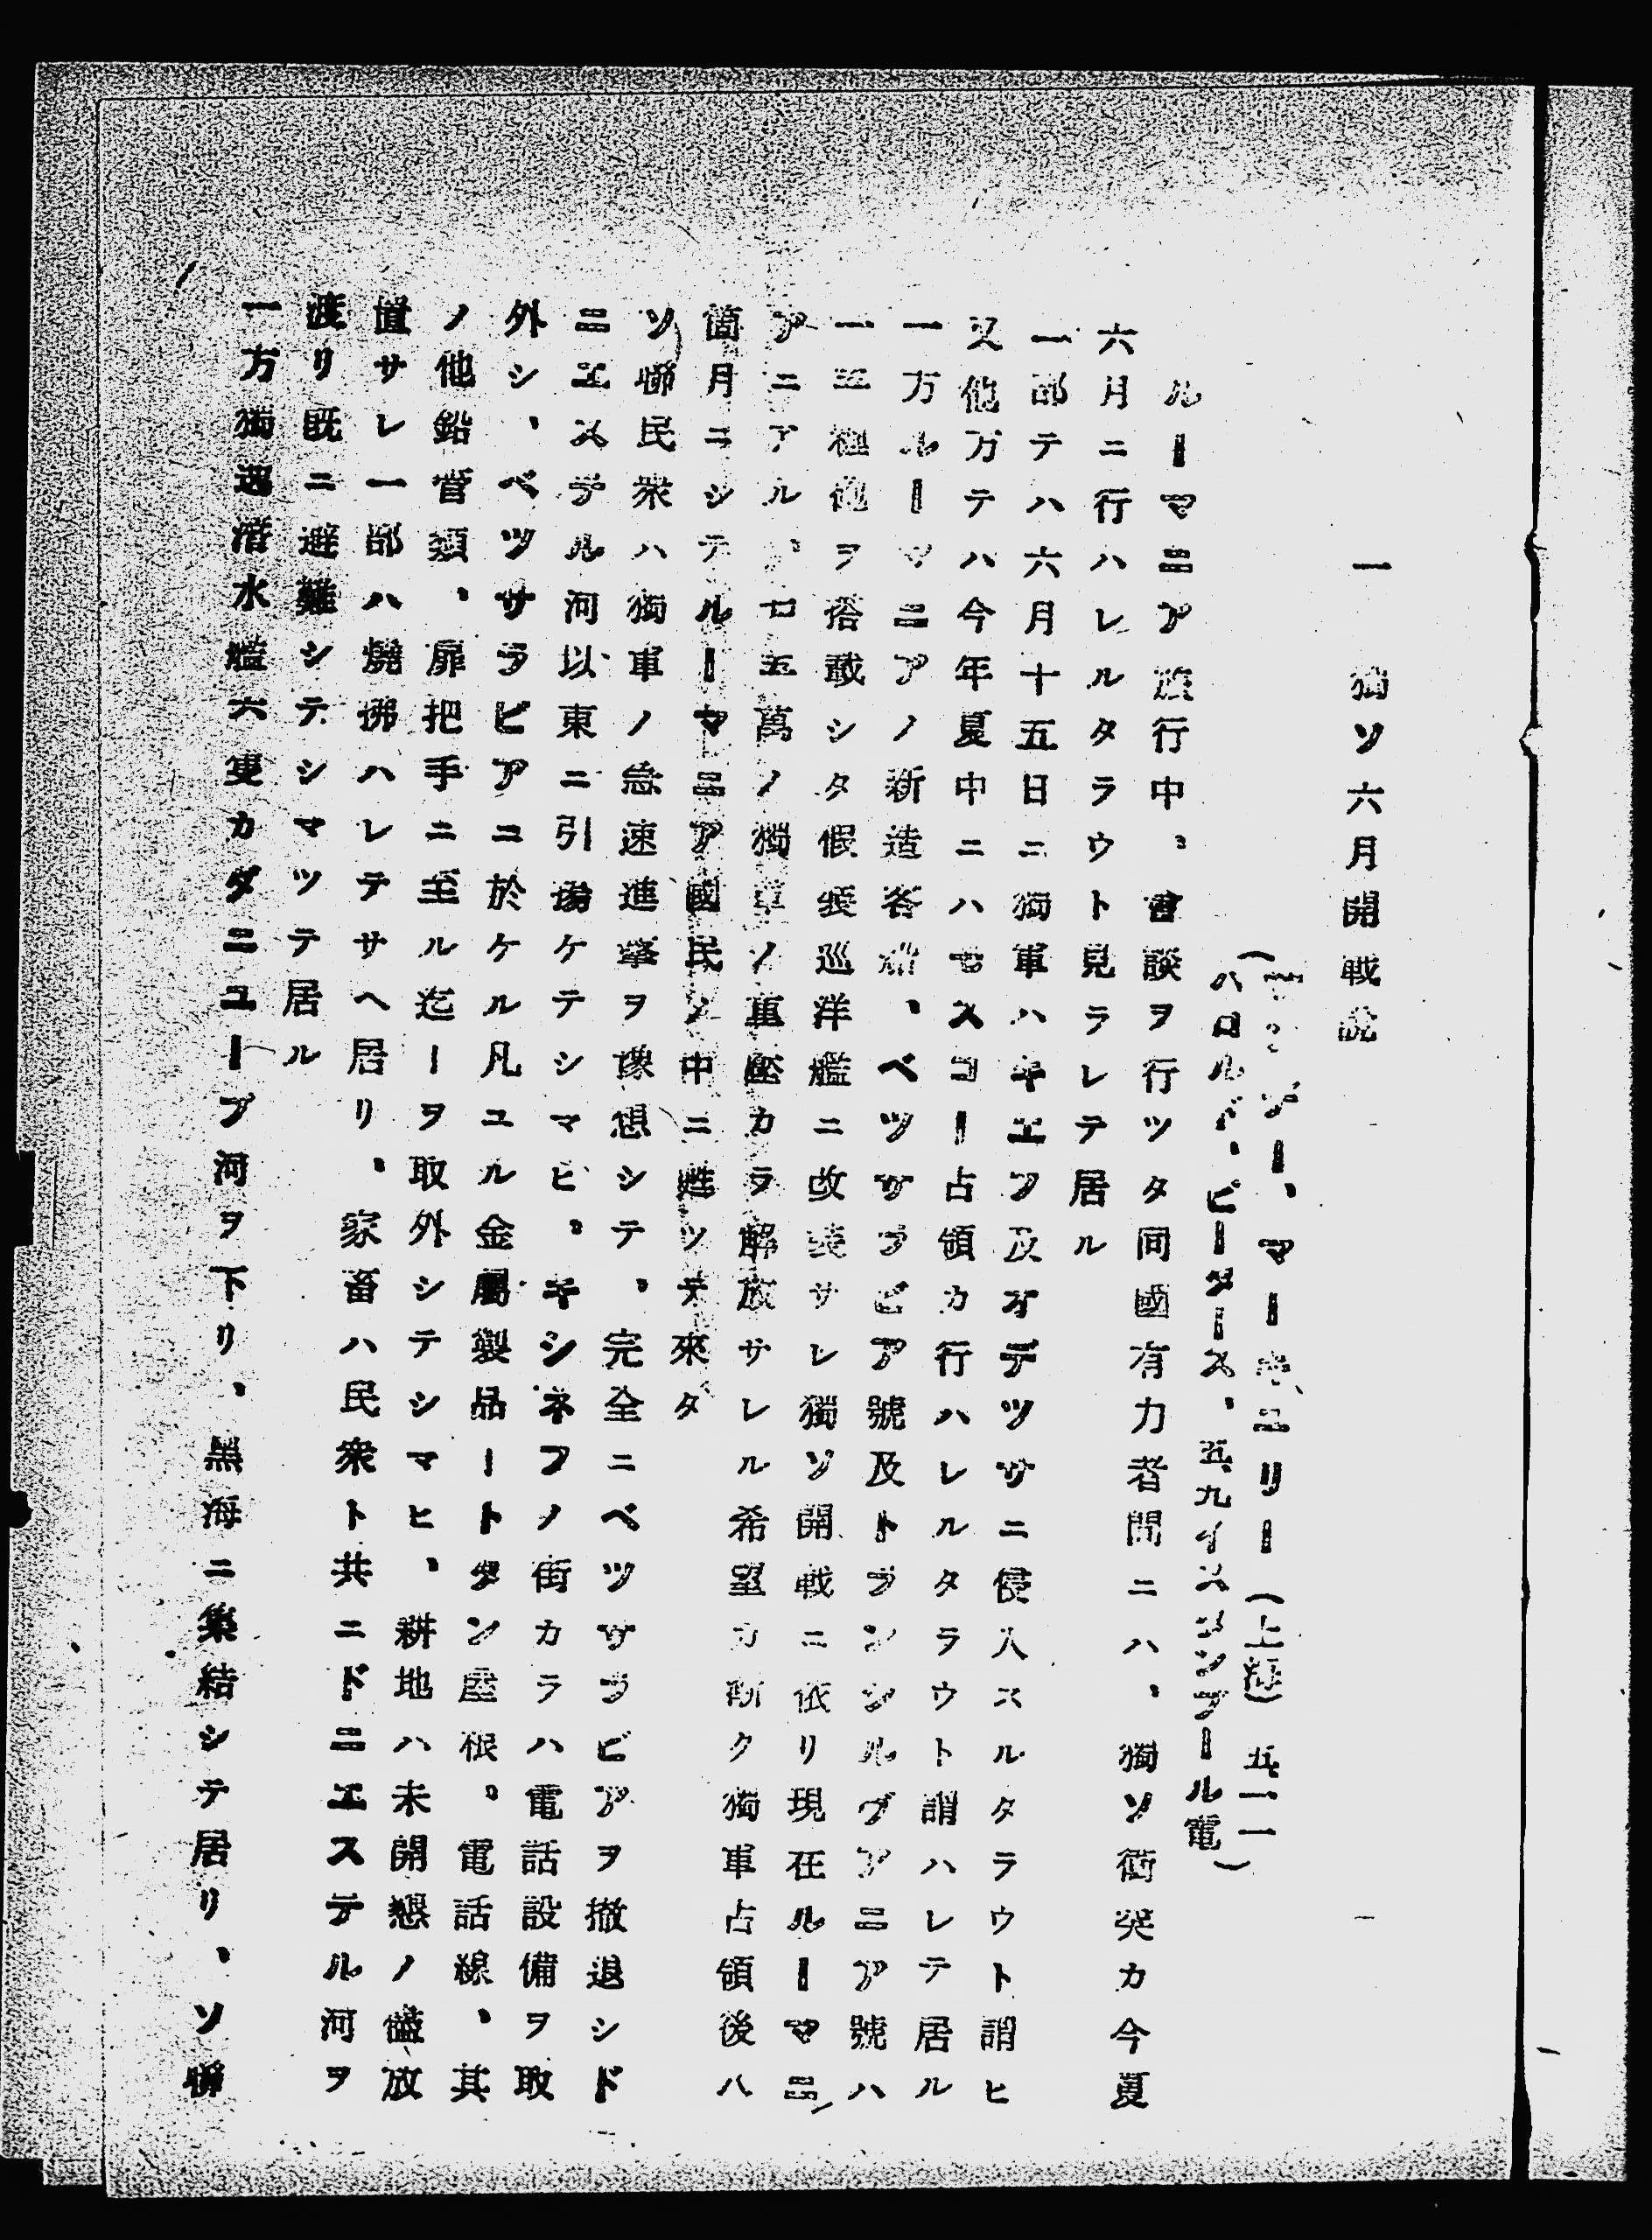 一　獨ソ六月開戰說
ー、マーキユリー（上海）五、一一
（ハロルド、ピータース、五、九イスタンブール電）
ルーマニア旅行中、會談ヲ行ツタ同國有力者間ニハ、獨ソ衝突カ今夏
六月ニ行ハレルタラウト見ラレテ居ル
一部テハ六月十五日ニ獨軍ハキエフ及オデツサニ侵入スルタラウト謂ヒ
又他方テハ今年夏中ニハモスコー占領カ行ハレルタラウト謂ハレテ居ル
一方ルーマニアノ新造客船、ベツサラビア號及トランシルヴアニア號ハ
砲ヲ搭載シタ假裝巡洋艦ニ改裝サレ獨ソ開戰ニ依リ現在ルーマニ
アニアル、五萬ノ獨軍ノ重壓カラ解放サレル希望カ斯ク獨軍占領後八
箇月ニシテルーマニア國民ノ中ニ甦ツテ來タ
ソ聯民衆ハ獨軍ノ急速進擊ヲ豫想シテ、完全ニベツサラビアヲ撤退シド
ニエステル河以東ニ引揚ケテシマヒ、キシネフノ街カラハ電話設備ヲ取
外シ、ベツサラビアニ於ケル凡ユル金屬製品ートタン屋根。電話線、其
ノ他鉛管類、扉把手ニ至ル迄ーヲ取外シテシマヒ、耕地ハ未開懇ノ儘放
置サレ一部ハ燒拂ハレテサヘ居リ、家畜ハ民衆ト共ニドニエステル河ヲ
渡リ旣ニ避難シテシマツテ居ル
一方獨逸潛水艦六隻カダニユーブ河ヲ下リ、黑海ニ集結シテ居リ、ソ聯